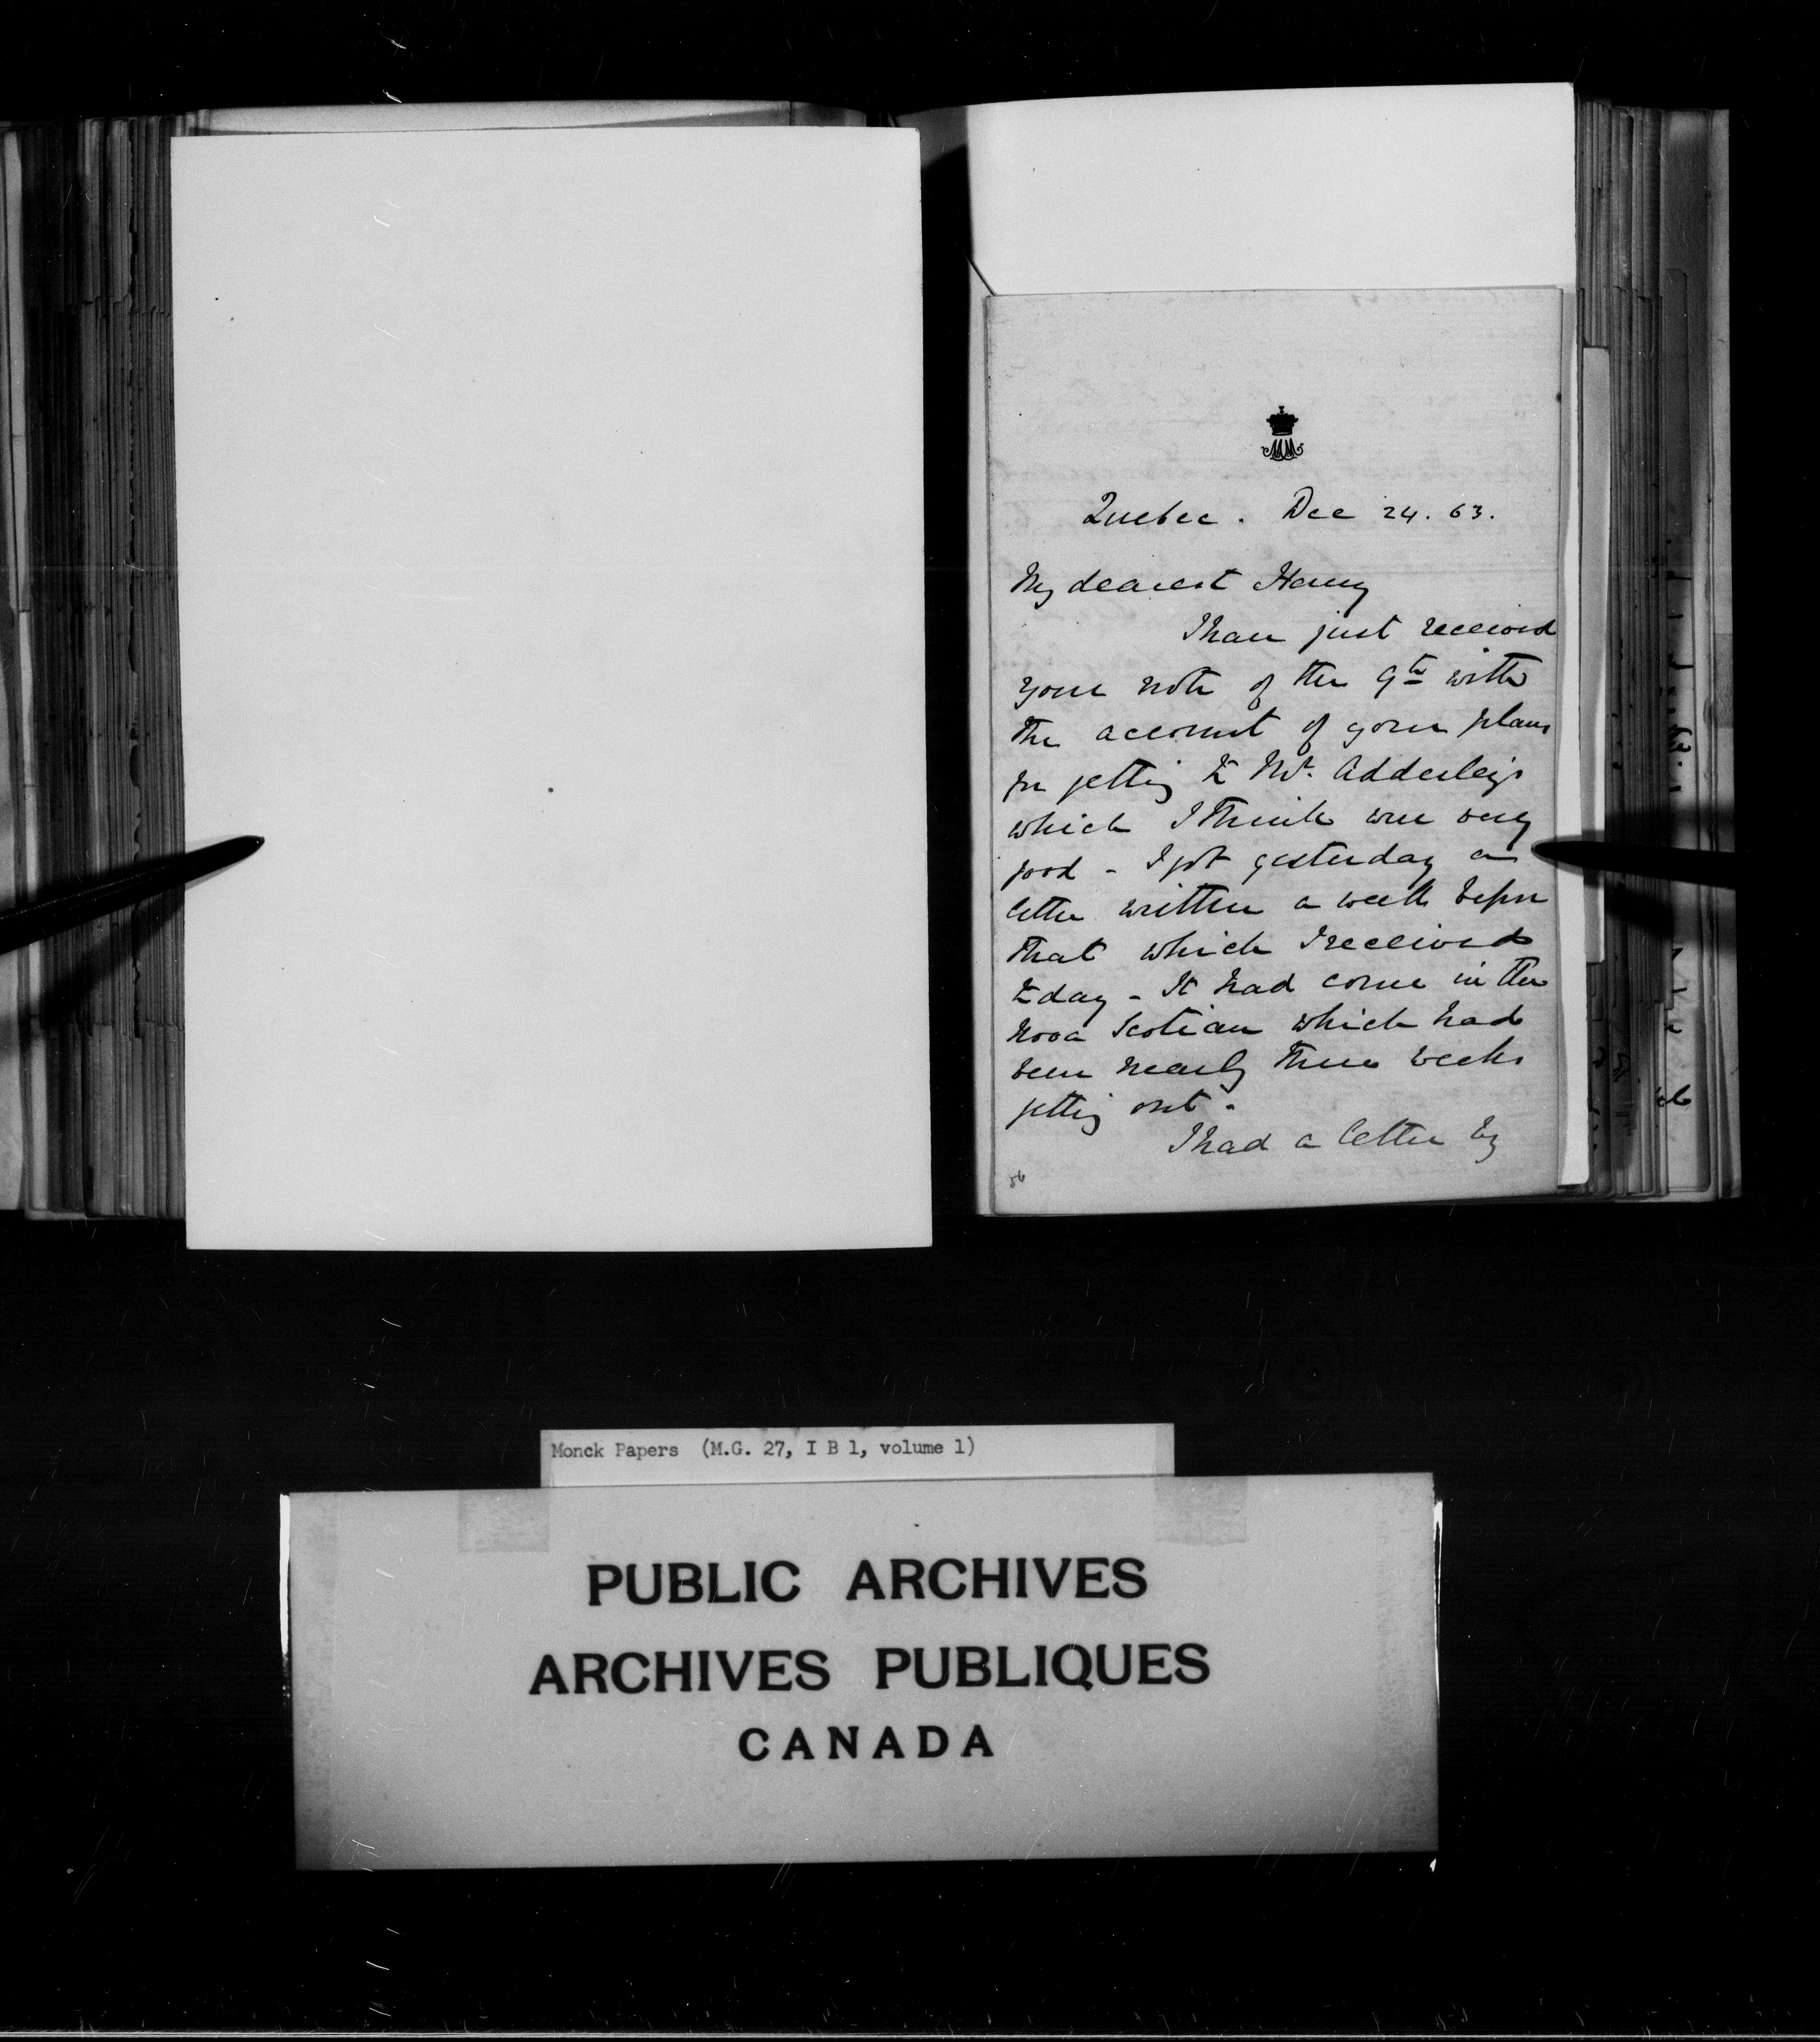 Quebec. Dec 24. 63.
My dearest Henry
I have just received
your note of the 9th with
the account of your plans
for getting to Mr. Adderleys
which I think were very
good - I got yesterday a
letter written a week before
that which I received
today - It had come in the
Nova Scotian which had
been nearly three weeks
getting out -
I had a letter by
Monck Papers (M.G. 27, I B 1, volume 1)
PUBLIC ARCHIVES
ARCHIVES PUBLIQUES
CANADA